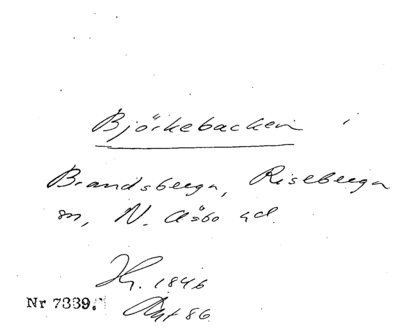 Björkebacken i
Brandsberga, Riseberga
sn, N. Åsbo hd.
1846
Nr 7339.
86